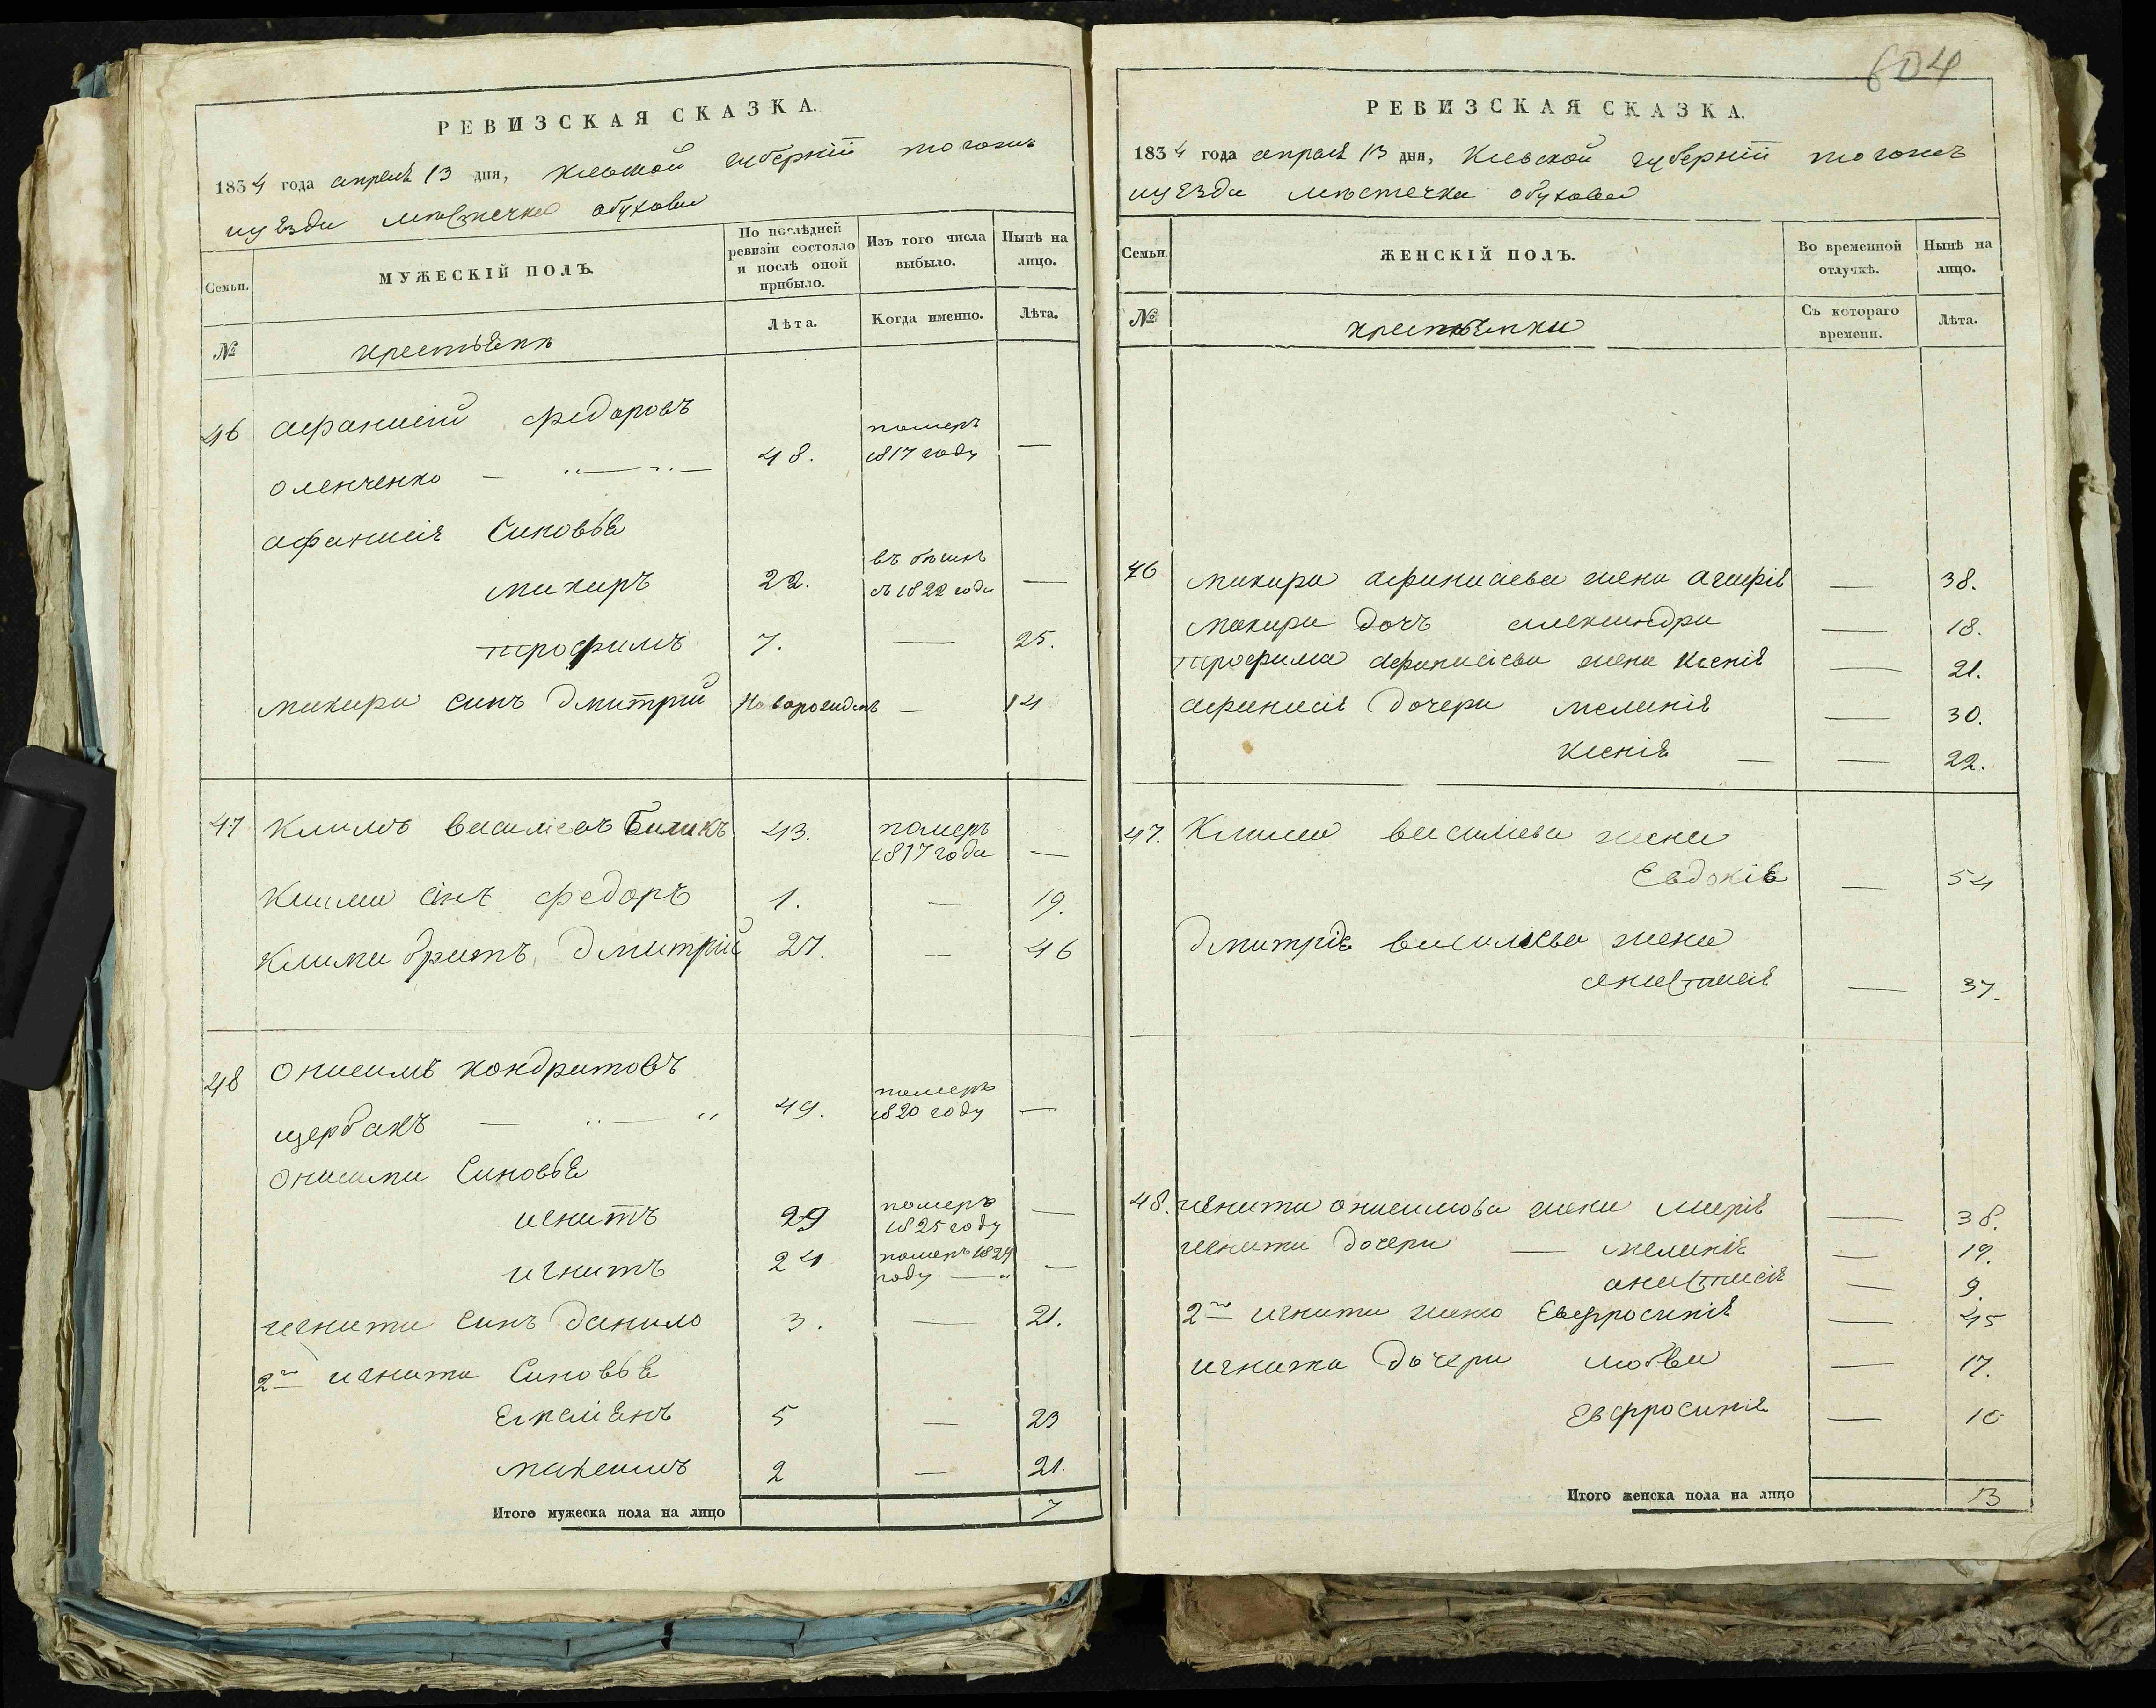 604
РЕВИЗСКАЯ СКАЗКА.
1834 года апреля 13 дня, Киевской губерній тогожъ
иуезда местечка обухова
Семьи.
МУЖЕСКІЙ ПОЛЪ.
По послѣдней ревизіи состояло и послѣ оной прибыло.
Изъ того числа выбыло.
Нынѣ на лицо.
№
крестьяне
Лѣта.
Когда именно.
Лѣта.
46 афанасій федоровъ
оленченко — 48. померъ 1817 году —
афанасія Синовья
макаръ 22. въ бегахъ съ 1822 года —
трофимъ 7. — 25.
макара синъ Дмитрій Новорожденъ — 14
47 Климъ василіевъ Биликъ 43. померъ 1817 года —
Клима сінъ федоръ 1. — 19.
Клима братъ Дмитрій 27. — 46
48 Онисимъ кондратовъ
щербакъ — 49. померъ 1820 году —
Онисима Синовья
игнатъ 29 померъ 1825 году —
игнатъ 24 померъ 1829 году —
игната синъ данило 3. — 21.
2го игната Синовья
Емеліянъ 5 — 23
максимъ 2 — 21.
Итого мужеска пола на лицо 7
РЕВИЗСКАЯ СКАЗКА.
1834 года апреля 13 дня, Киевской губерній тогожъ
иуезда местечка обухова
Семьи
ЖЕНСКІЙ ПОЛЪ.
Во временной отлучкѣ.
Нынѣ на лицо.
№
крестьянки
Съ котораго времени.
Лѣта.
46 макара афанасіева жена агафія — 38.
макара дочъ александра — 18.
трофима афанасіева жена Ксенія — 21.
афанасія дочери меланія — 30.
Ксенія — — 22.
47. Клима василіева жена
Евдокія — 54
Дмитрія васильева жена
анастасія — 37.
48. игната онисимова жена марія — 38.
игната дочери — меланія — 19.
анастасія — 9.
2го игната жена Евфросинія — 45
игната дочери любва — 17.
Евфросинія — 10
Итого женска пола на лицо 13